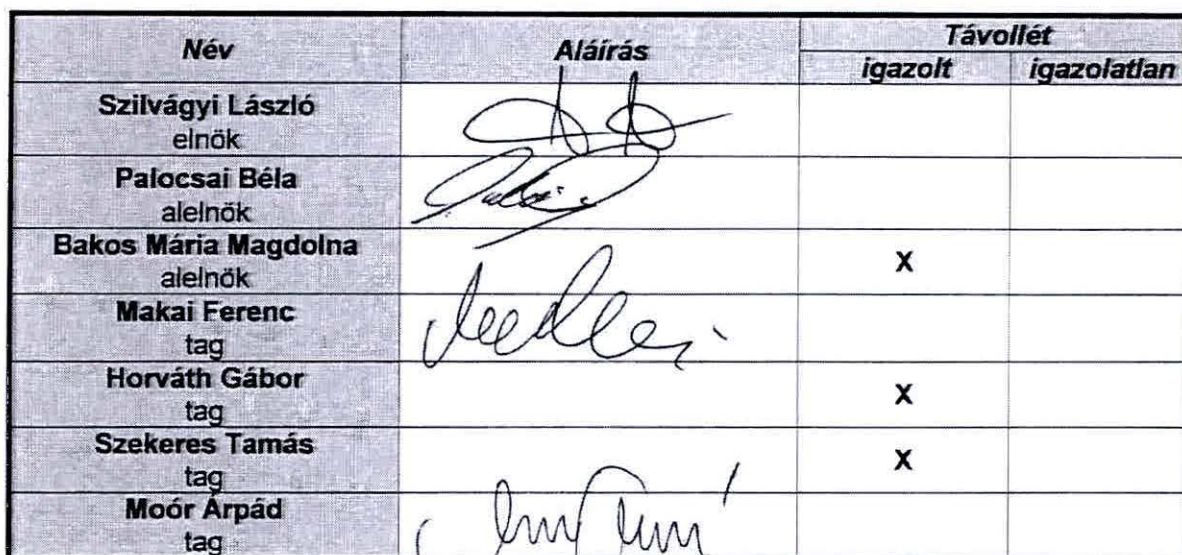 Név Aláírás Távollét
igazolt igazolatlan
Szilvágyi László
elnök
Palocsai Béla
alelnök
Bakos Mária Magdolna
alelnök X
Makai Ferenc
tag
Horváth Gábor
tag X
Szekeres Tamás
tag X
Moór Árpád
tag